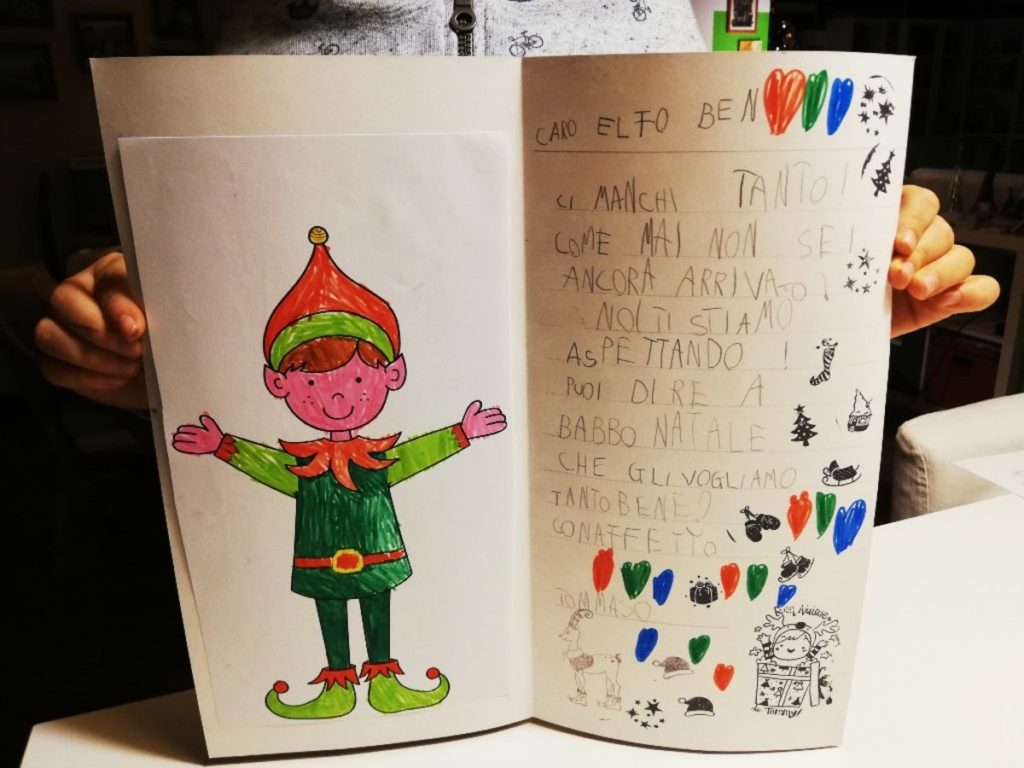 CARO ELFO BEN
CI MANCHI TANTO!
COME MAI NON SEI
ANCORA ARRIVATO
NOI TI STIAMO
ASPETTANDO!
PUOI DIRE A
BABBO NATALE
CHE GLI VOGLIAMO
TANTO BENE?
CON AFFETTO
TOMMASO
Bon Natale
de Tommy